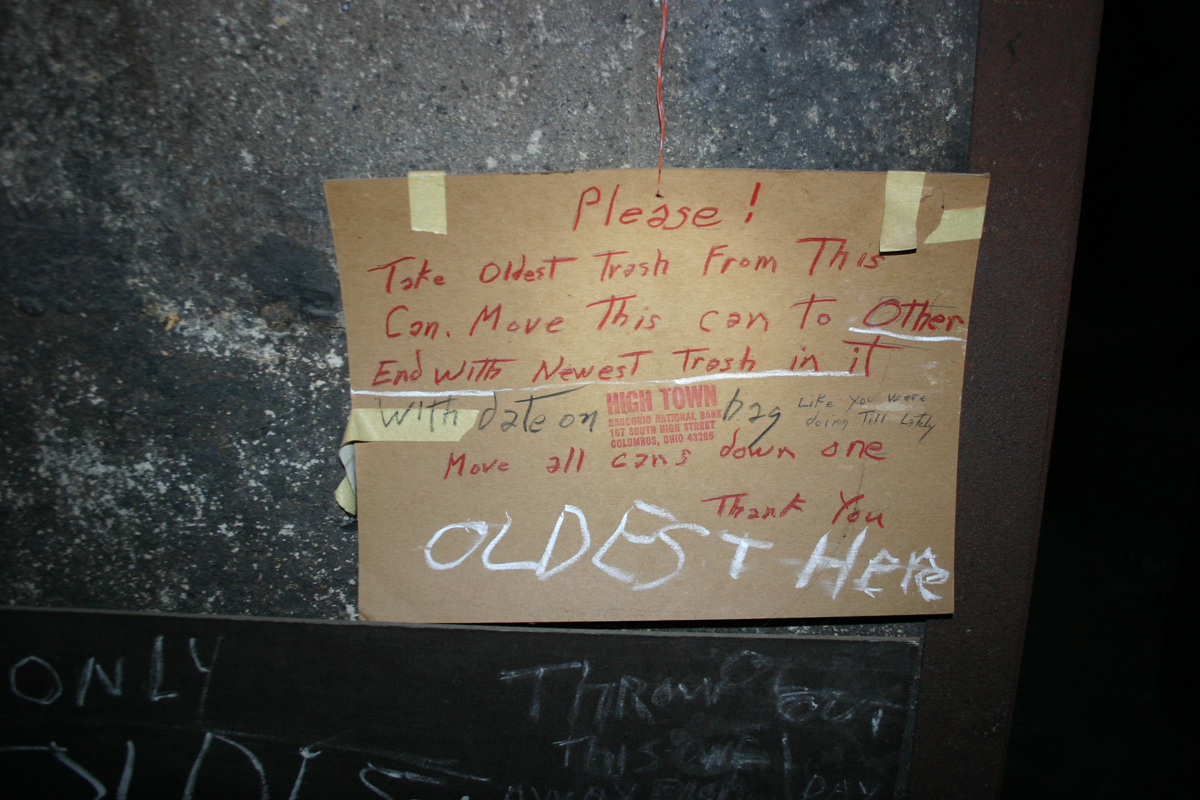 Please!
Take Oldest Trash From This
Can. Move This can to Other
End with Newest Trash in it
With date on bag Like You were
doing Till Lately
HIGH TOWN
BANCOHIO NATIONAL BANK
167 SOUTH HIGH STREET
COLUMBUS, OHIO 43265
Move all cans down one
Thank You
OLDEST Here
ONLY
THROW OUT
THIS ONE
DAY